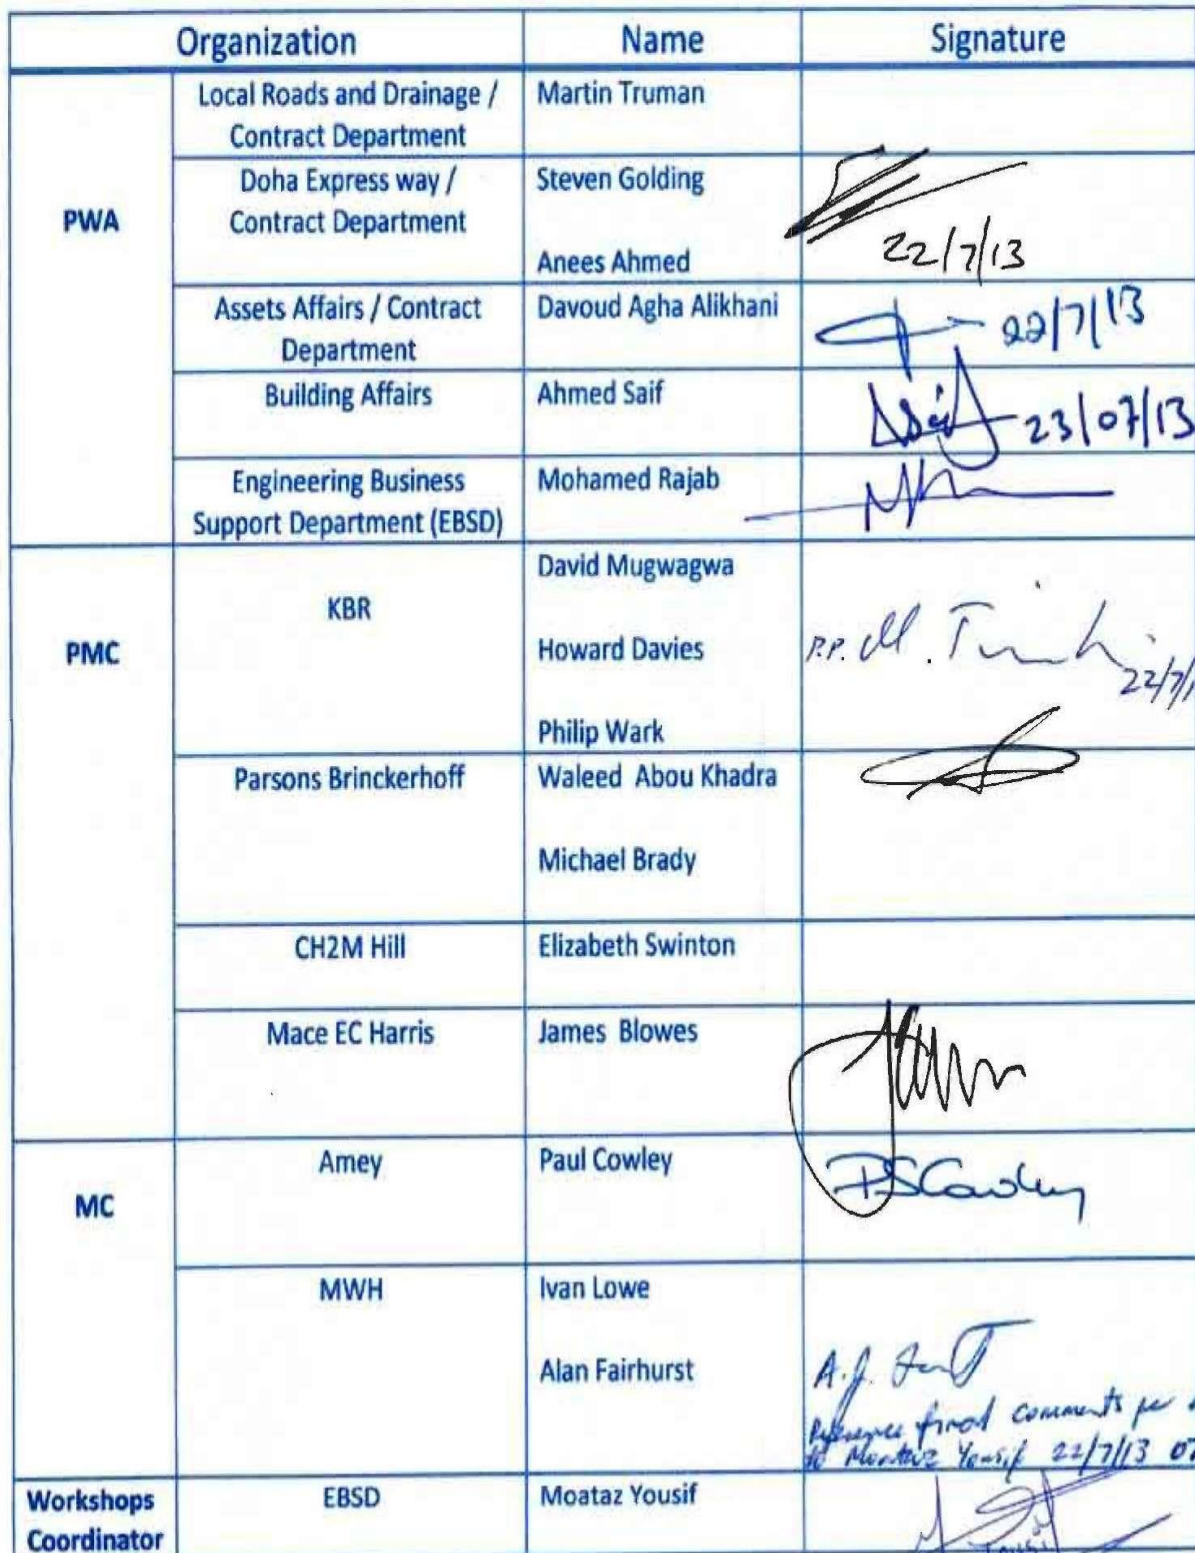 Organization Name Signature
PWA
Local Roads and Drainage /
Contract Department
Martin Truman
Doha Express way /
Contract Department
Steven Golding
Anees Ahmed
22/7/13
Assets Affairs / Contract
Department
Davoud Agha Alikhani
22/7/13
Building Affairs
Ahmed Saif
23/07/13
Engineering Business
Support Department (EBSD)
Mohamed Rajab
PMC
KBR
David Mugwagwa
Howard Davies
P.P. M.
22/7/1
Philip Wark
Parsons Brinckerhoff
Waleed Abou Khadra
Michael Brady
CH2M Hill
Elizabeth Swinton
Mace EC Harris
James Blowes
MC
Amey
Paul Cowley
PSCowley
MWH
Ivan Lowe
Alan Fairhurst
A.J.
final comments per
to Moataz Yousif 22/7/13 07
Workshops
Coordinator
EBSD
Moataz Yousif